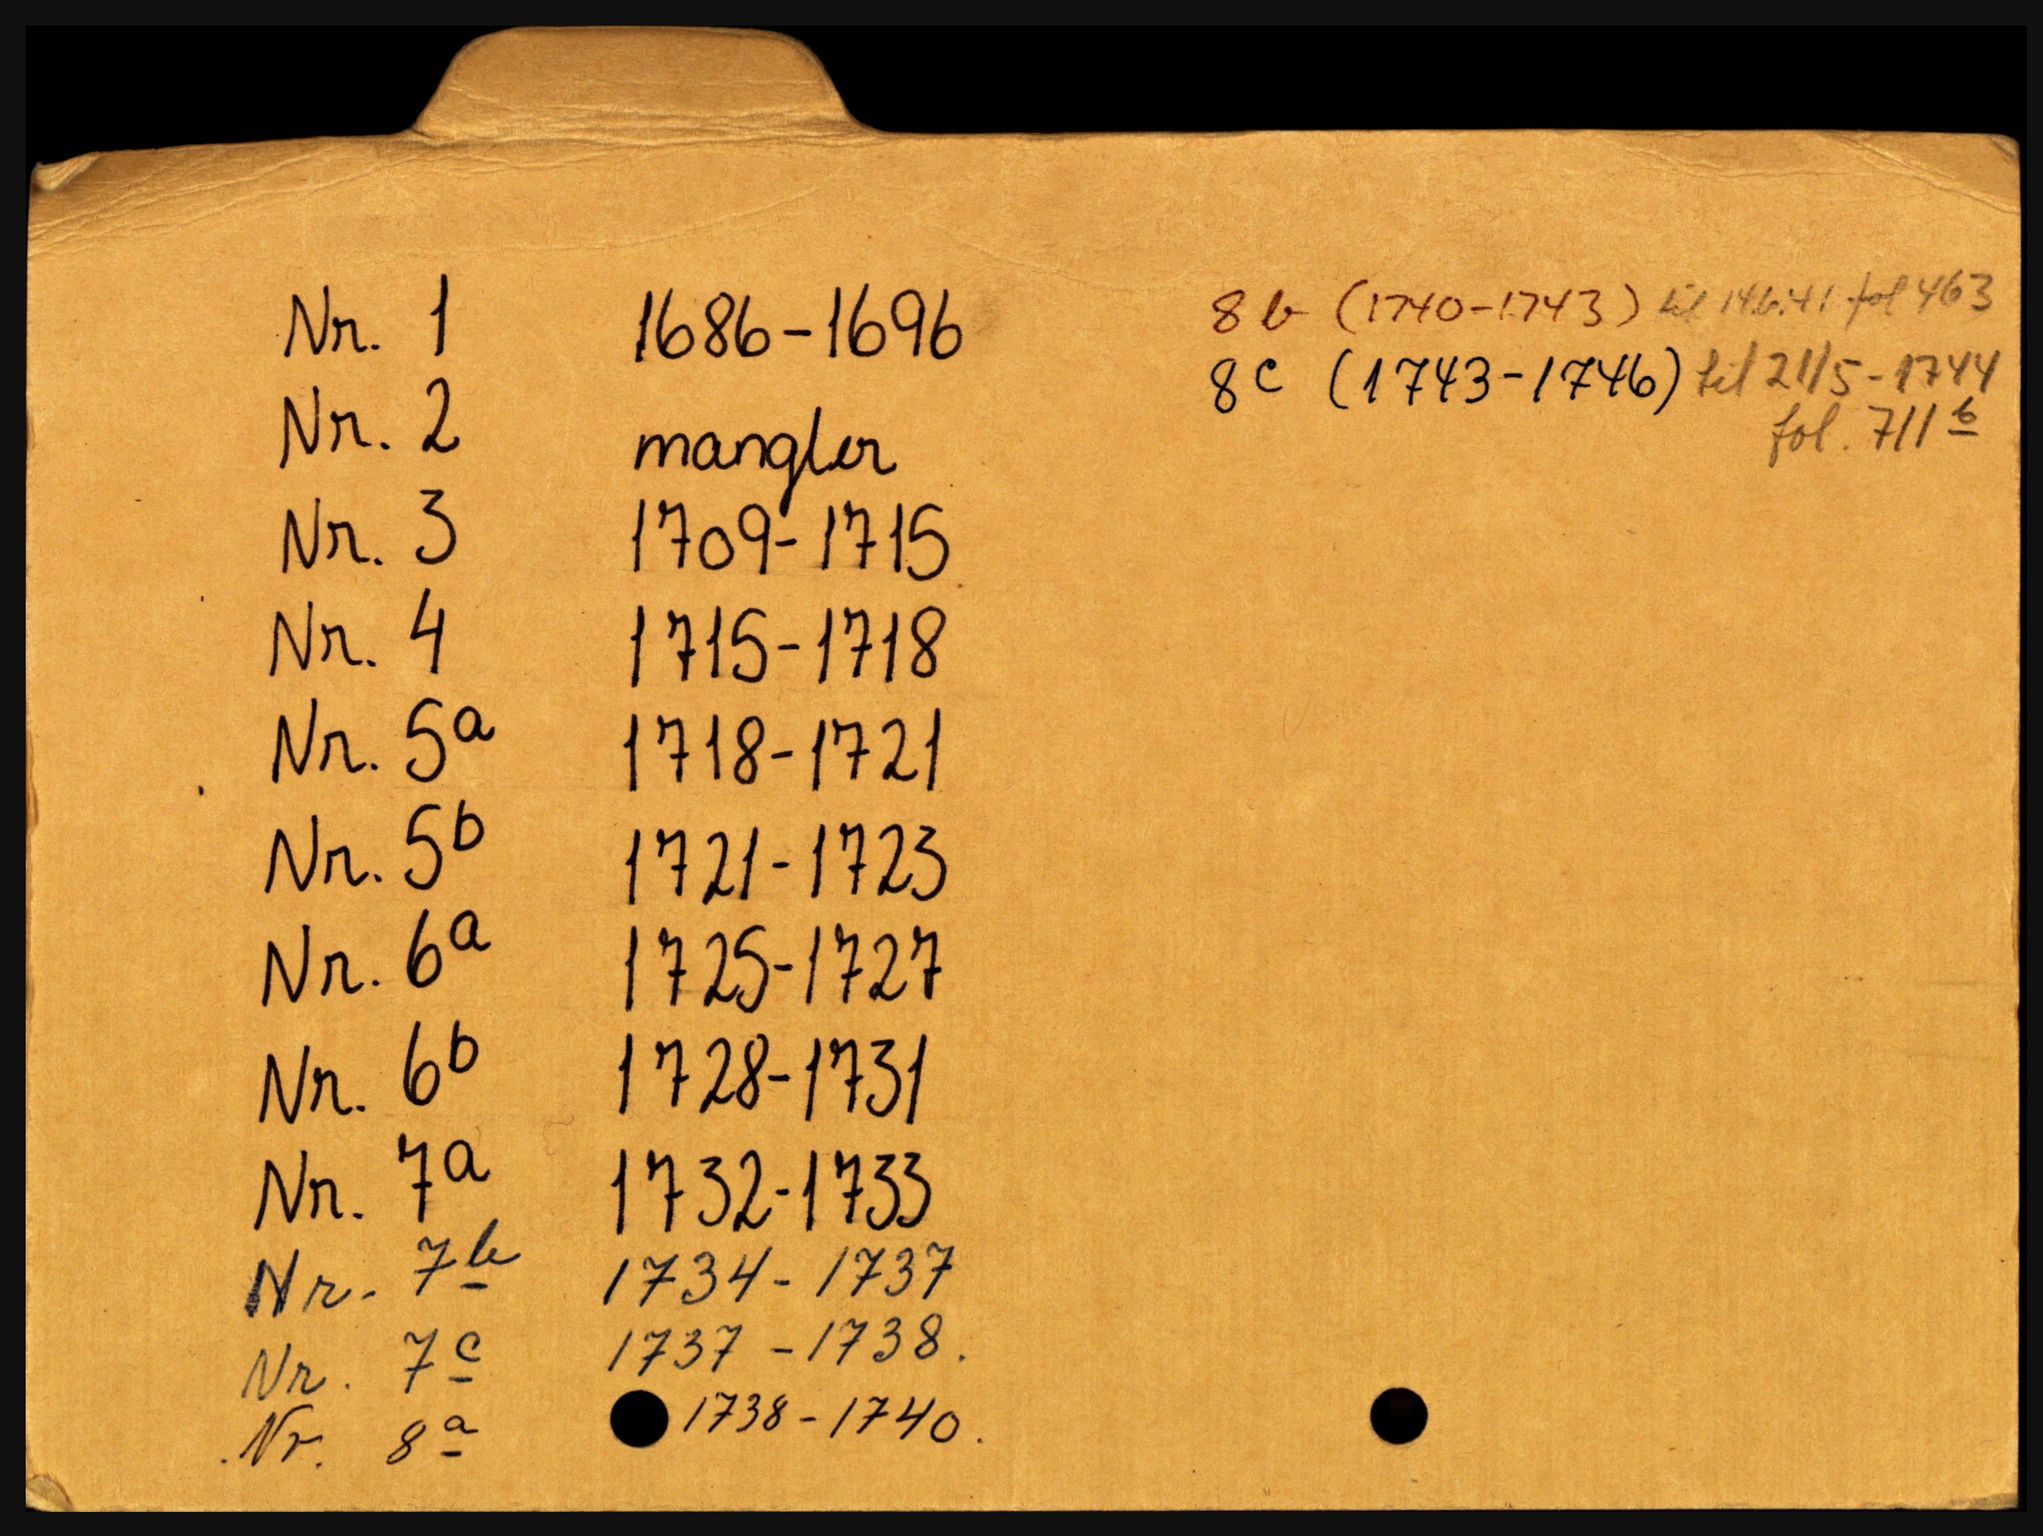 Nr. 1 1686-1696
Nr. 2 mangler
Nr. 3 1709-1715
Nr. 4 1715-1718
Nr. 5a 1718-1721
Nr. 5b 1721-1723
Nr. 6a 1725-1727
Nr. 6b 1728-1731
Nr. 7a 1732-1733
Nr. 7b 1734-1737
Nr. 7c 1737-1738.
Nr. 8a 1738-1740.
8b (1740-1743) til 14.6.41 fol 463
8c (1743-1746) til 21/5-1744
fol. 711b